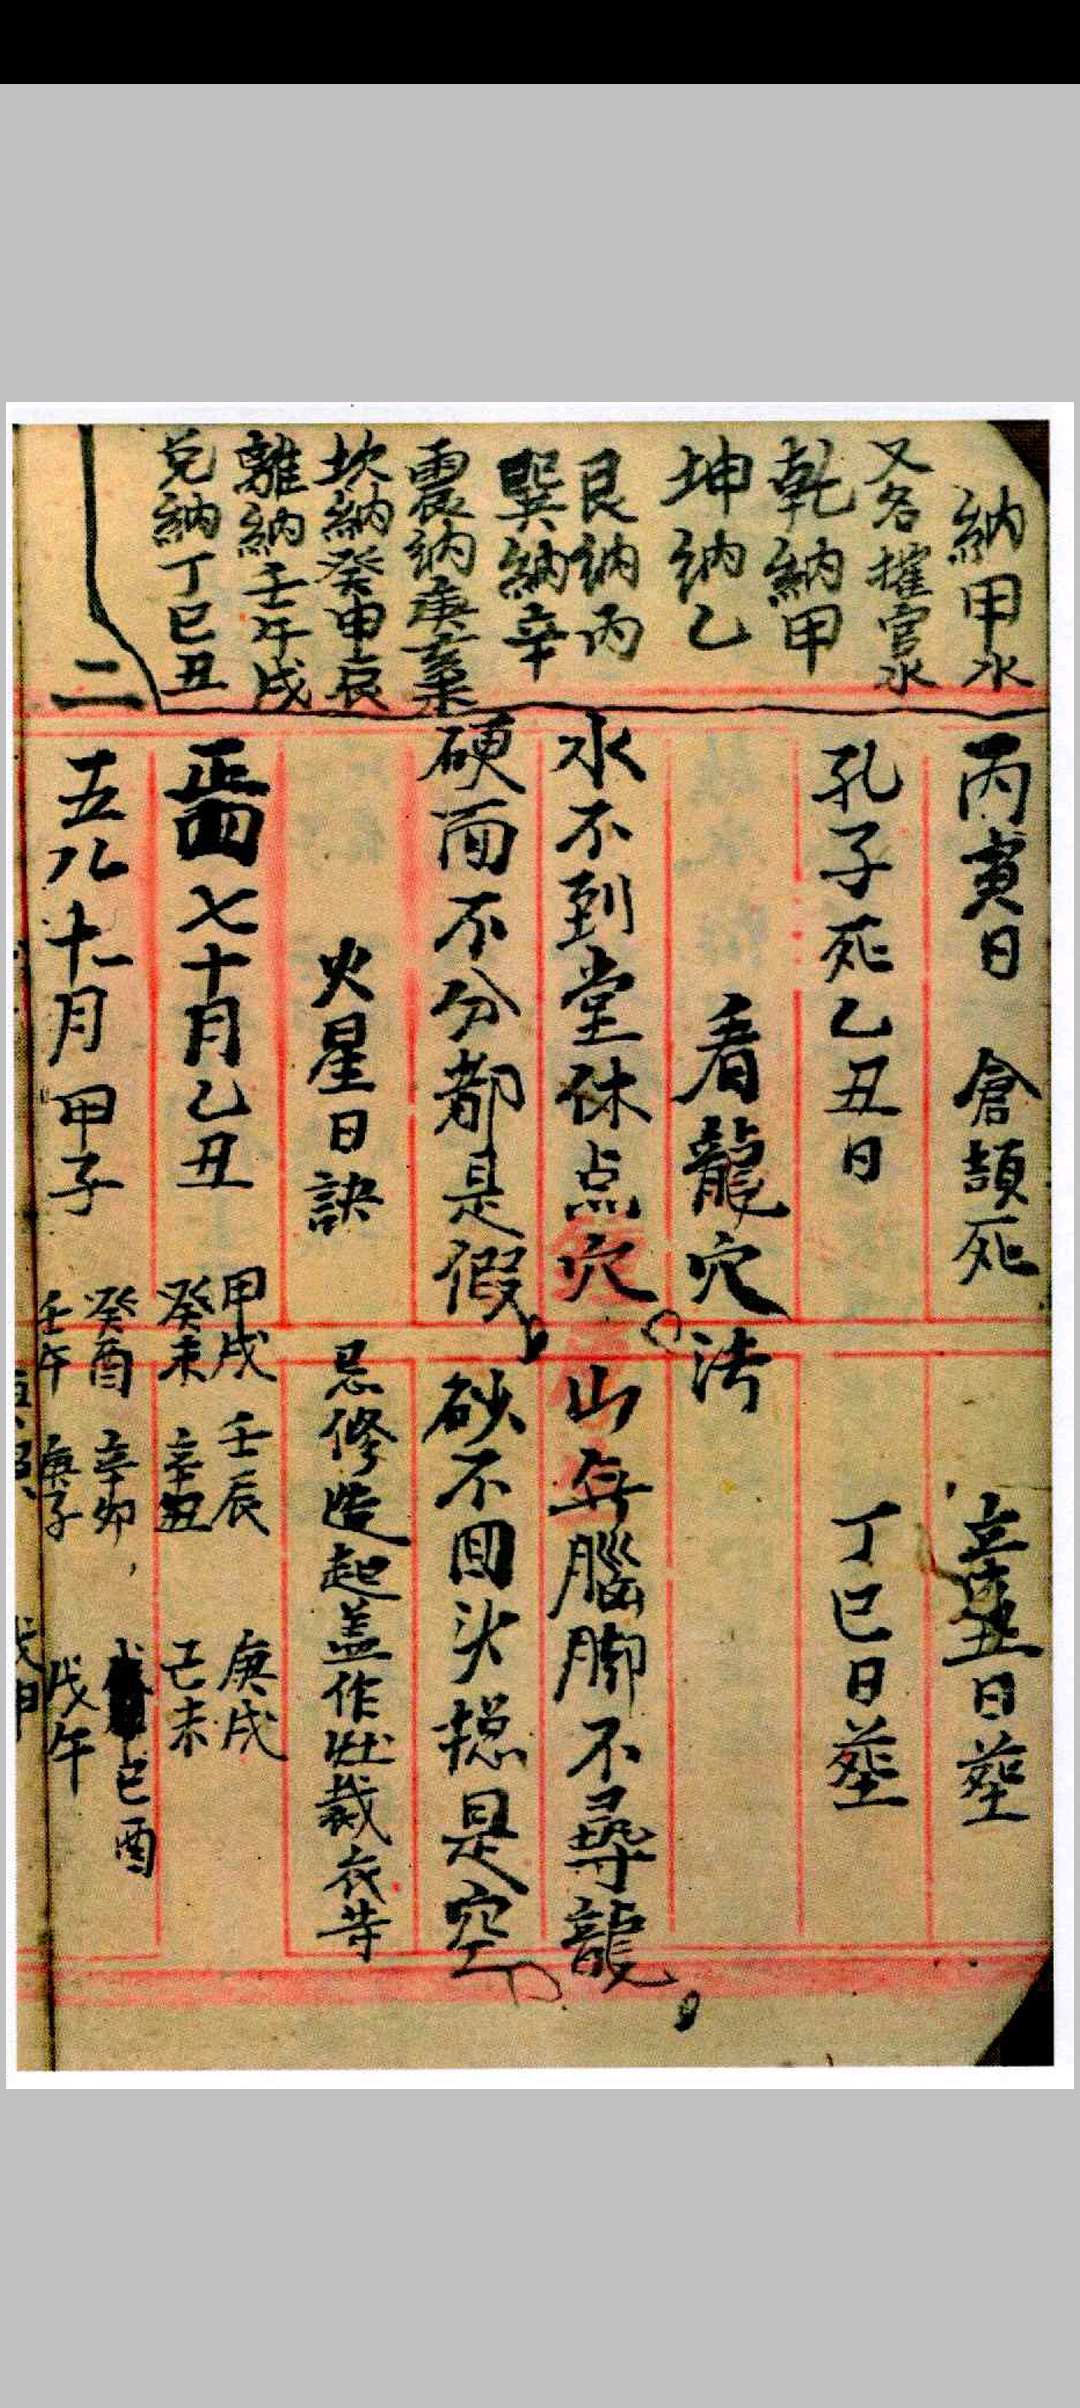 納甲水
又名攉官水
乾納甲
坤納乙
艮納丙
巽納辛
震納庚亥未
坎納癸申辰
離納壬午戌
兌納丁巳丑
丙寅日 倉頡死 日葬
孔子死乙丑日 丁巳日葬
看龍穴法
水不到堂休点穴 山無腦脚不尋龍
硬面不分都是假 砂不回头摠是空
火星日訣 忌修造起盖作灶裁衣等
正四七十月乙丑 甲戌 壬辰 庚戌
癸未 辛丑 己未
二
五八十一月甲子 癸酉 辛卯 己酉
壬午 庚子 戊午